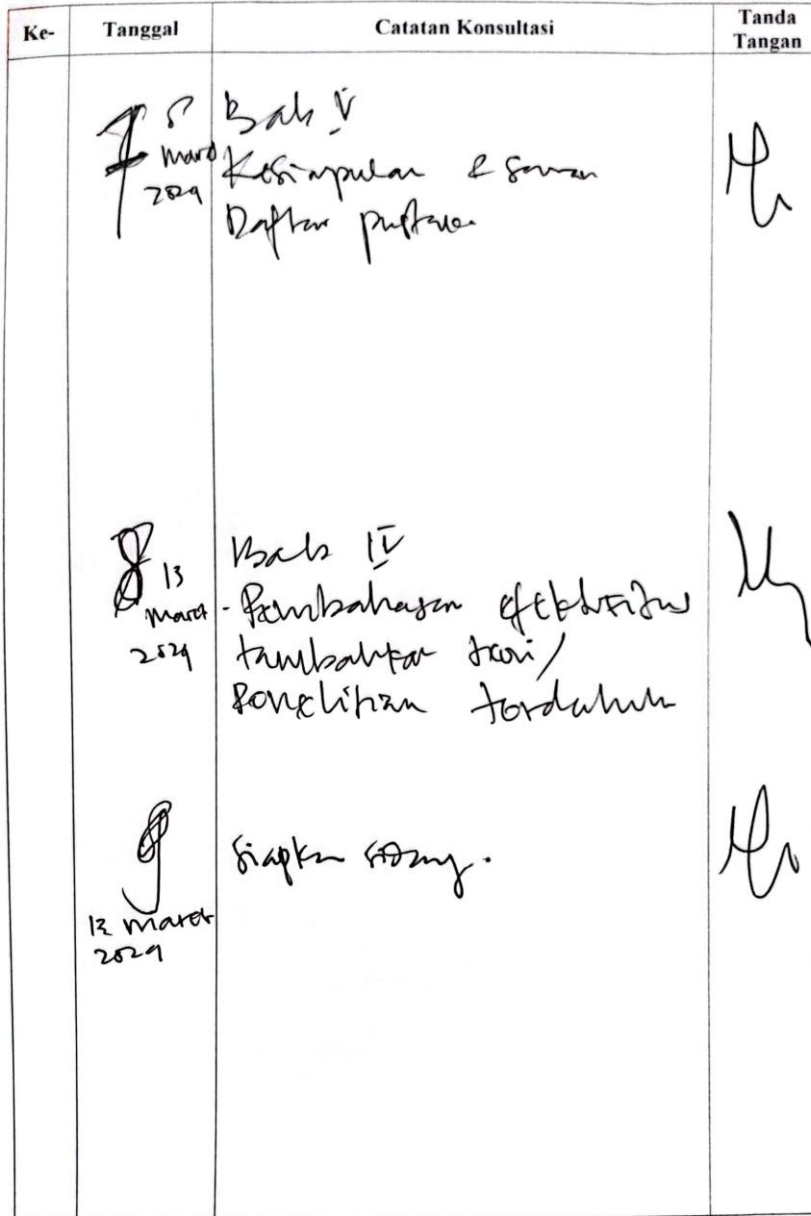 Ke- Tanggal Catatan Konsultasi Tanda Tangan
7 8 Maret 2024 Bab V
Kesimpulan & saran
Daftar pustaka
8 13 Maret 2024 Bab IV
- Pembahasan efektifitas
tambahkan teori/
penelitian terdahulu
9 Siapkan sidang.
Maret
2024